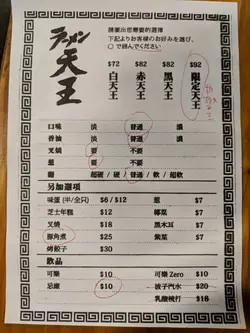 ラーメン
天王
請圈出您需要的選擇
下記よりお客様のお好みを選び、
○で囲んでください
$72 $82 $82 $92
白天王 赤天王 黒天王 限定天王
口味 淡 普通 濃
香油 淡 普通 濃
叉燒 要 不要
葱 要 不要
麵 超硬 / 硬 / 普通 / 軟 / 超軟
另加選項
味蛋 (半/全只) $6 / $12 葱 $7
芝士年糕 $10 椰菜 $7
叉燒 $18 黑木耳 $7
豚角煮 $25 紫菜 $7
燒餃子 $30
飲品
可樂 $10 可樂 Zero $10
忌廉 $10 波子汽水 $20
乳酸梳打 $16